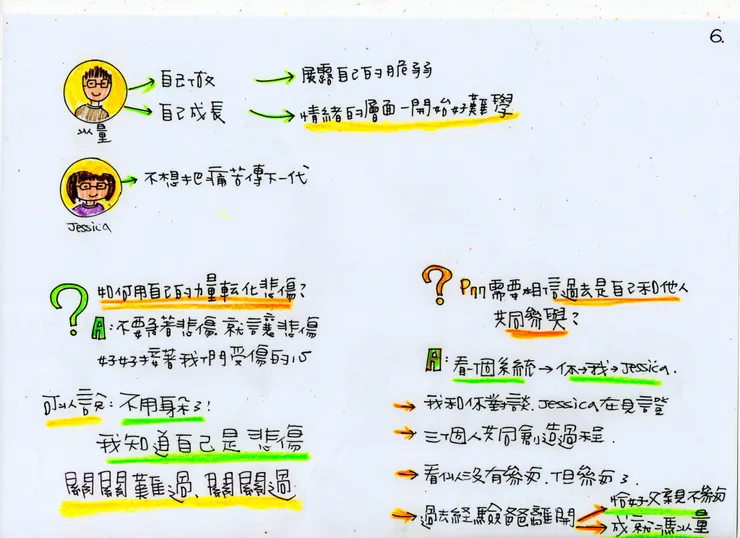 6.
自己做 → 展露自己的脆弱
自己成長 → 情緒的層面一開始好難學
以量
不想把痛苦傳下一代
Jessica
如何用自己的力量転化悲傷?
A:不要急著悲傷 就讓悲傷
好好接著我們受傷的心
可以說: 不用躲了!
我知道自己是悲傷
關關難過、關關過
為何需要相信過去是自己和他人
共同參與?
A:看一個系統→你→我→Jessica.
我和你對談.Jessica在見證
三個人共同創造過程.
看似沒有參與.但參與了.
過去経驗爸爸離開
恰好父親不參與
成就馮以量